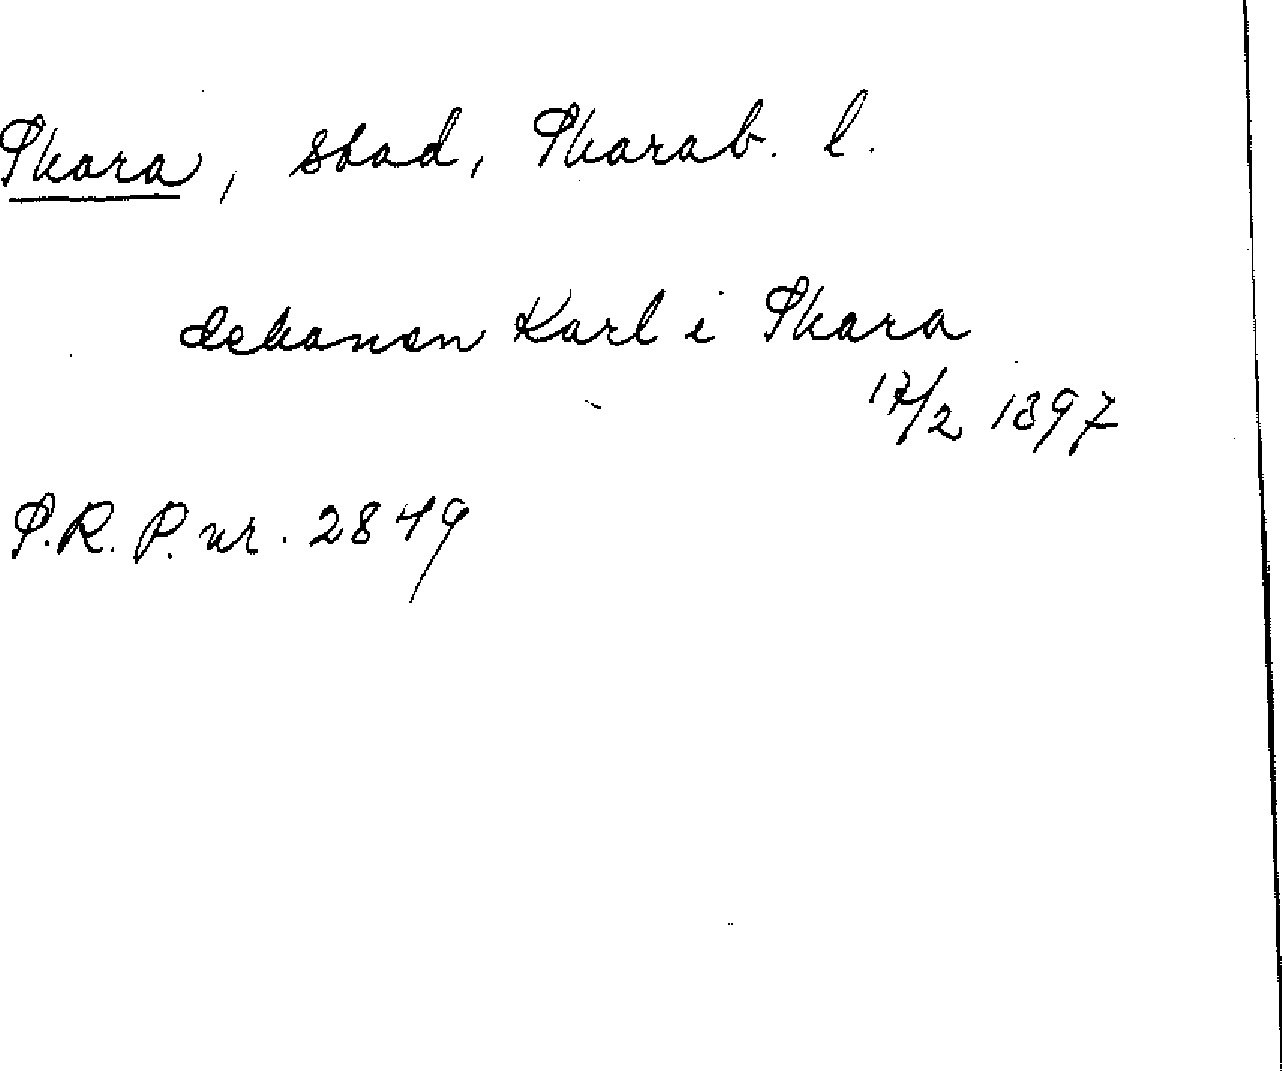 Skara, stad, Skarab. l.
dekanen Karl i Skara
17/2 1397
S.R.P. nr. 2849